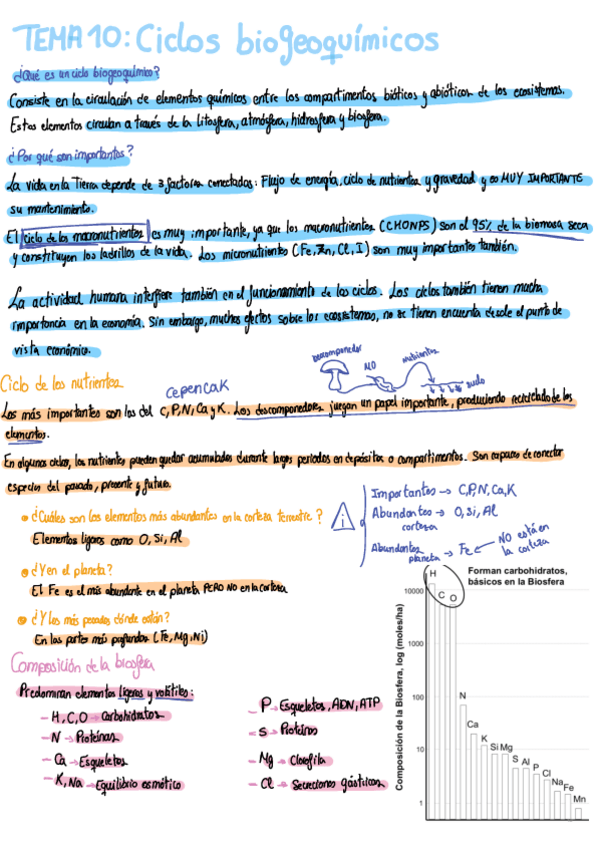 TEMA 10: Ciclos biogeoquímicos
¿Qué es un ciclo biogeoquímico?
Consiste en la circulación de elementos químicos entre los compartimentos bióticos y abióticos de los ecosistemas.
Estos elementos circulan a través de la litosfera, atmósfera, hidrosfera y biosfera.
¿Por qué son importantes?
La vida en la Tierra depende de 3 factores conectados: Flujo de energía, ciclo de nutrientes y gravedad y es MUY IMPORTANTE
su mantenimiento.
El ciclo de los macronutrientes es muy importante, ya que los macronutrientes (CHONPS) son el 95% de la biomasa seca
y constituyen los ladrillos de la vida. Los micronutrientes (Fe, Zn, Cl, I) son muy importantes también.
La actividad humana interfiere también en el funcionamiento de los ciclos. Los ciclos también tienen mucha
importancia en la economía. Sin embargo, muchos efectos sobre los ecosistemas, no se tienen encuenta desde el punto de
vista económico.
Descomponedor
MO
nutrientes
suelo
Ciclo de los nutrientes
CePeNCaK
Los más importantes son los del C, P, N, Ca y K. Los descomponedores juegan un papel importante, produciendo reciclado de los
elementos.
En algunos ciclos, los nutrientes pueden quedar acumulados durante largos periodos en depósitos o compartimentos. Son capaces de conectar
especies del pasado, presente y futuro.
¿Cuáles son los elementos más abundantes en la corteza terrestre?
Elementos ligeros como O, Si, Al
¿Y en el planeta?
El Fe es el más abundante en el planeta PERO NO en la corteza
¿Y los más pesados dónde están?
En las partes más profundas (Fe, Mg, Ni)
Importantes → C, P, N, Ca, K
Abundantes corteza → O, Si, Al
Abundantes planeta → Fe ← NO está en la corteza
Composición de la biosfera
Predominan elementos ligeros y volátiles:
- H, C, O → Carbohidratos
- N → Proteínas
- Ca → Esqueletos
- K, Na → Equilibrio osmótico
- P → Esqueletos, ADN, ATP
- S → Proteínas
- Mg → Clorofila
- Cl → Secreciones gástricas
Forman carbohidratos,
básicos en la Biosfera
Composición de la Biosfera, log (moles/ha)
10000
1000
100
10
1
H
C
O
N
Ca
K
Si
Mg
S
Al
P
Cl
Na
Fe
Mn